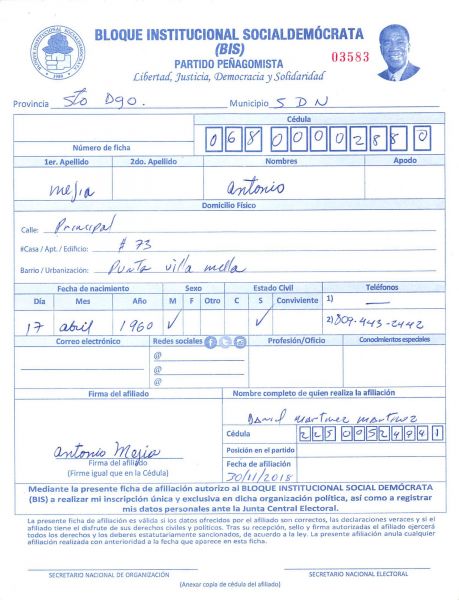 BLOQUE INSTITUCIONAL SOCIALDEMÓCRATA
(BIS)
PARTIDO PEÑAGOMISTA
03583
Libertad, Justicia, Democracia y Solidaridad
Provincia Sto Dgo. Municipio S D N
Cédula
Número de ficha 068 0000288 0
1er. Apellido 2do. Apellido Nombres Apodo
Mejia Antonio
Domicilio Físico
Calle: Principal
#Casa / Apt. / Edificio: # 73
Barrio / Urbanización: Punta villa mella
Fecha de nacimiento Sexo Estado Civil Teléfonos
Día Mes Año M F Otro C S Conviviente 1) —
17 abril 1960 ✓ ✓ 2) 809-443-2442
Correo electrónico Redes sociales Profesión/Oficio Conocimientos especiales
@
@
@
Firma del afiliado Nombre completo de quien realiza la afiliación
David martinez martinez
Cédula 225 0052484 1
Antonio Mejia Posición en el partido
Firma del afiliado Fecha de afiliación
(Firme igual que en la Cédula) 30/11/2018
Mediante la presente ficha de afiliación autorizo al BLOQUE INSTITUCIONAL SOCIAL DEMÓCRATA
(BIS) a realizar mi inscripción única y exclusiva en dicha organización política, así como a registrar
mis datos personales ante la Junta Central Electoral.
La presente ficha de afiliación es válida si los datos ofrecidos por el afiliado son correctos, las declaraciones veraces y si el
afiliado tiene el disfrute de sus derechos civiles y políticos. Tras su recepción, sello y firma autorizadas el afiliado ejercerá
todos los derechos y los deberes estatutariamente sancionados, de acuerdo a la ley. La presente afiliación anula cualquier
afiliación realizada con anterioridad a la fecha que aparece en esta ficha.
SECRETARIO NACIONAL DE ORGANIZACIÓN SECRETARIO NACIONAL ELECTORAL
(Anexar copia de cédula del afiliado)